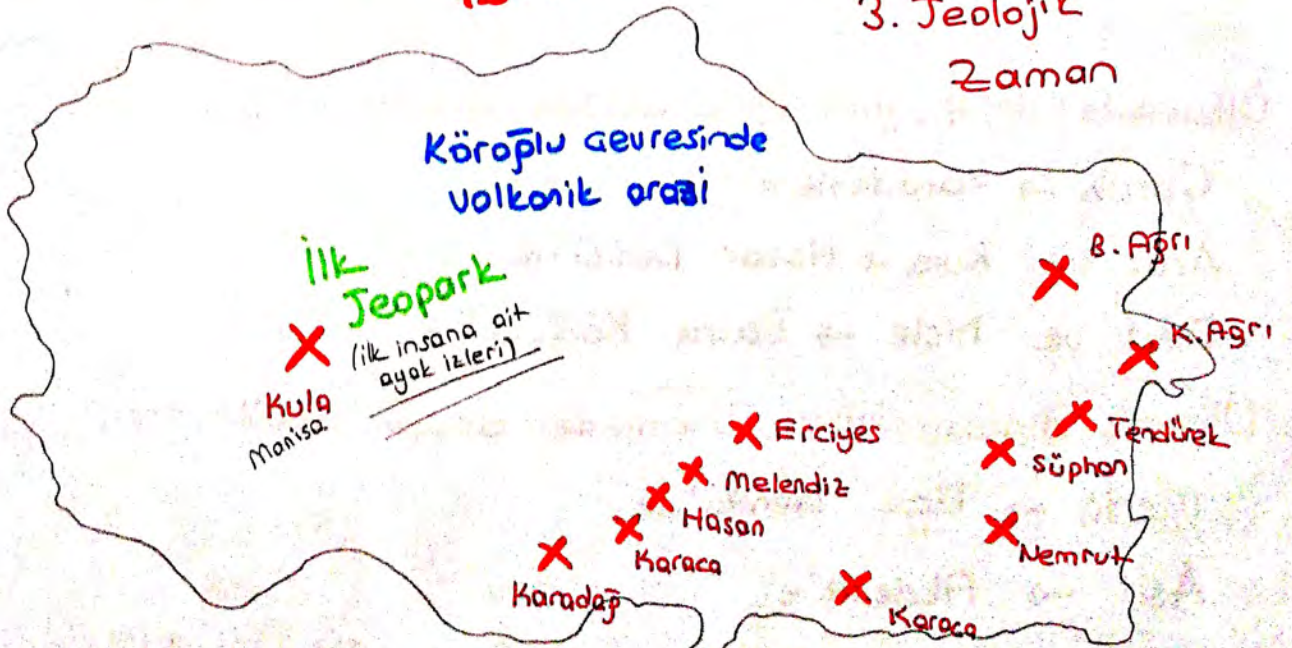 3. Jeolojik
Zaman
Köroğlu çevresinde
volkanik arazi
İlk
Jeopark
(ilk insana ait
ayak izleri)
Kula
Manisa
B. Ağrı
K. Ağrı
Tendürek
Süphan
Nemrut
Erciyes
Melendiz
Hasan
Karaca
Karadağ
Karaca